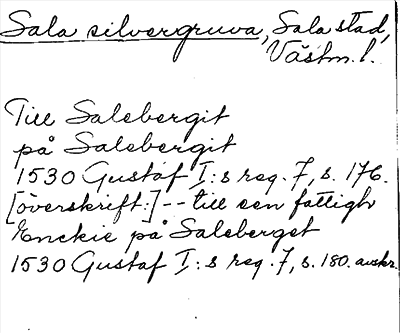 Sala silvergruva, Sala stad,
Västm. l.
Till Salebergit
på Salebergit
1530 Gustaf I:s reg. 7, s. 176.
[överskrift:] -- till een fattigh
Enckie på Saleberget
1530 Gustaf I:s reg. 7, s. 180. avskr.